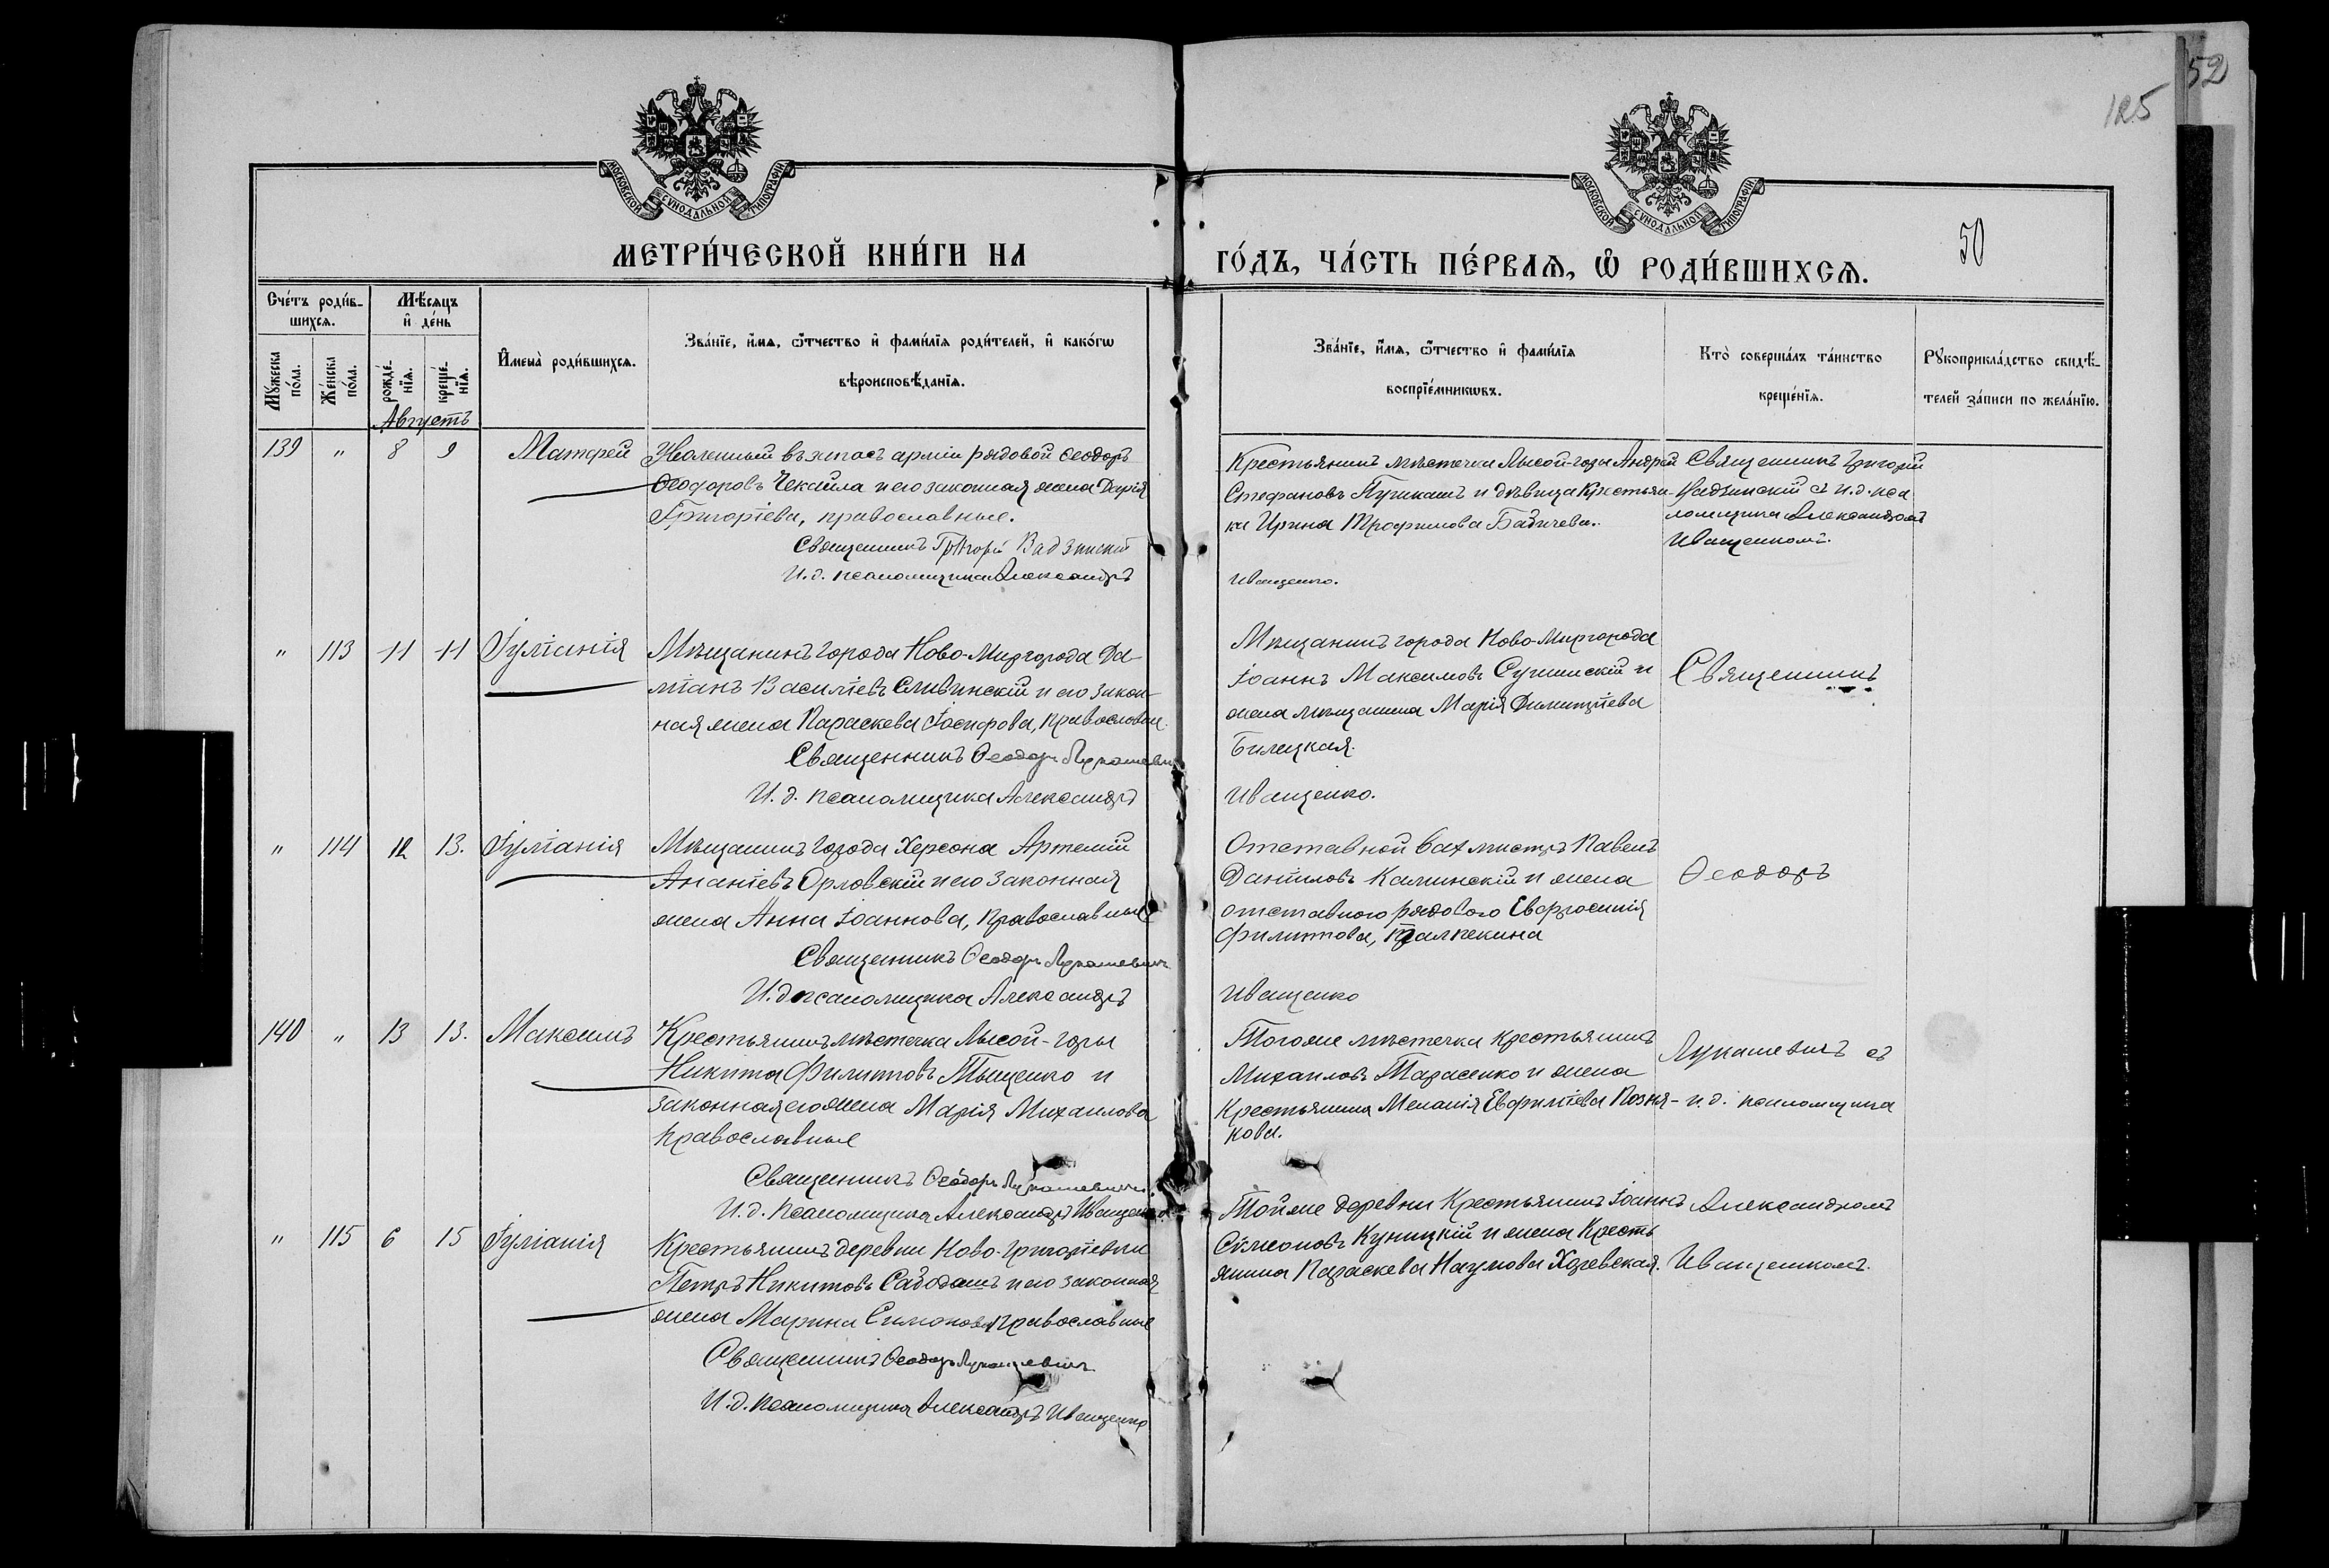 52
125
50
МОСКОВСКОЙ СѴНОДАЛЬНОЙ ТИПОГРАФІИ
МОСКОВСКОЙ СѴНОДАЛЬНОЙ ТИПОГРАФІИ
МЕТРИ́ЧЕСКОЙ КНИ́ГИ НА
ГО́ДЪ, ЧА́СТЬ ПЕ́РВАЯ, Ѡ РОДИ́ВШИХСЯ.
Сче́тъ роди́в-
шихся.
Мѣ́сяцъ
и де́нь
Мꙋ́жеска
по́ла.
Же́нска
по́ла.
рожде́-
нїя.
креще́-
нїя.
Имена̀ роди́вшихся.
Зва́нїе, и́мя, ѻ́тчество и фами́лїя роди́телей, и како́гѡ
вѣроисповѣ́данїя.
Зва́нїе, и́мя, ѻ́тчество и фами́лїя
воспрїе́мникѡвъ.
Кто̀ соверша́лъ та́инство
креще́нїя.
Рꙋкоприкла́дство свидѣ́-
телей за́писи по жела́нїю.
Августъ
139 " 8 9 Матфей
Уволенный въ запасъ арміи рядовой Ѳеодоръ
Ѳеодоровъ Чекайла и его законная жена Дарія
Григоріева, православные.
Священникъ Григорій Вадзинскій
И. д. псаломщика Александръ
Крестьянинъ мѣстечка Лысой-горы Андрей
Стефановъ и дѣвица Крестьян-
ка Ирина Трофимова
Иващенко.
Священникъ Григорій
Вадзинскій съ и. д. пса
ломщика Александромъ
Иващенкомъ.
" 113 11 11 Іуліанія
Мѣщанинъ города Ново-Миргорода Да-
міанъ Василіевъ Сливинскій и его закон-
ная жена Параскева Іосифова, православн.
Священникъ Ѳеодоръ Лукашевичъ
И. д. псаломщика Александръ
Мѣщанинъ города Ново-Миргорода
Іоаннъ Максимовъ и
жена мѣщанина Марія Димитріева
Билецкая.
Иващенко.
Священникъ
" 114 12 13. Іуліанія
Мѣщанинъ города Херсона Артемій
Ананіевъ Орловскій и его законная
жена Анна Іоаннова, православные
Священникъ Ѳеодоръ Лукашевичъ
И. д. псаломщика Александръ
Отставной вахмистръ Павелъ
Даніиловъ Калинскій и жена
отставного рядового Евфросинія
Филиппова,
Иващенко
Ѳеодоръ
140 " 13 13. Максимъ
Крестьянинъ мѣстечка Лысой-горы
Никита Филипповъ Тыщенко и
законная его жена Марія Михаилова
православные
Священникъ Ѳеодоръ Лукашевичъ.
И. д. псаломщика Александръ Иващенко
Тогоже мѣстечка крестьянинъ
Михаиловъ Тарасенко и жена
Крестьянина Меланія Евфиміева Позня-
кова.
Лукашевичъ съ
и. д. псаломщика
" 115 6 15 Іуліанія
Крестьянинъ деревни Ново-Григорьевки
Петръ Никитовъ и его законная
жена Марина Симонова православные
Священникъ Ѳеодоръ Лукашевичъ
И. д. псаломщика Александръ Иващенко
Тойже деревни Крестьянинъ Іоаннъ
Симеоновъ Куницкій и жена Кресть
янина Параскева Наумова
Александромъ
Иващенкомъ.